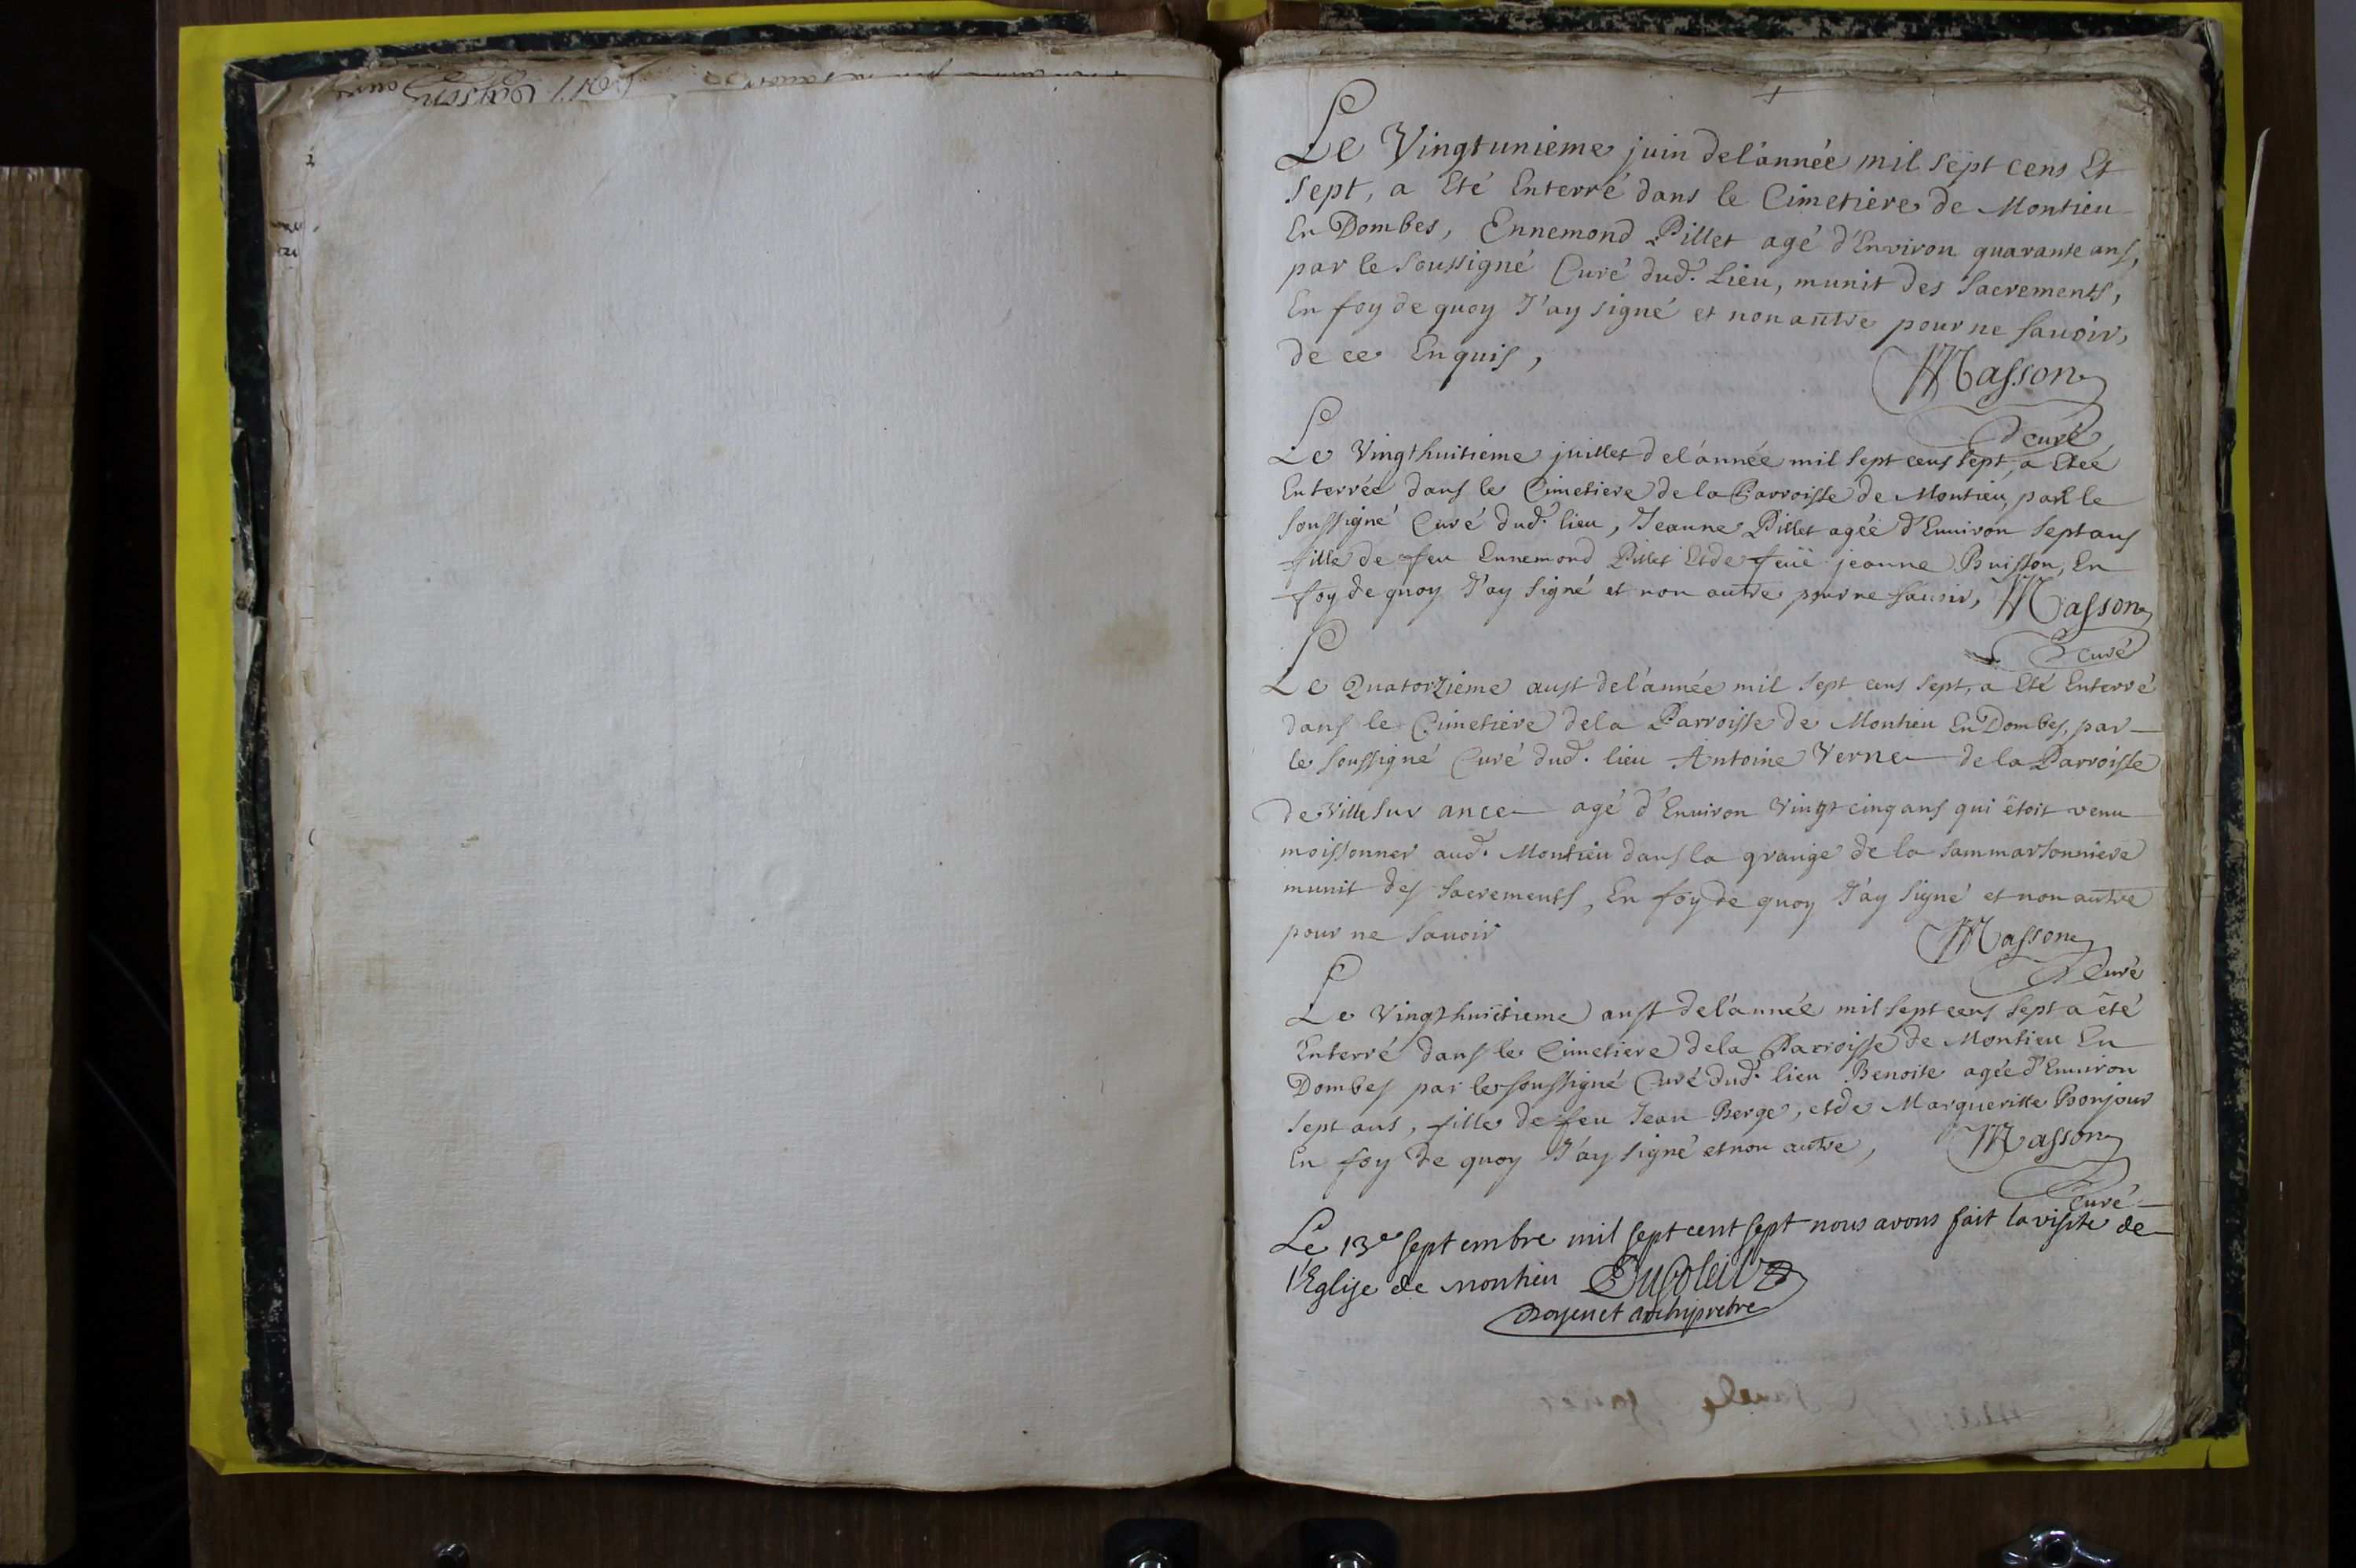 Le Vingtunieme juin de l'année mil sept cens Et
sept, a Eté Enterré dans le Cimetiere de Montieu
En Dombes, Ennemond Pillet agé d'Environ quarante ans,
par le soussigné Curé dud. Lieu, munit des Sacrements,
En foy de quoy J'ay signé et non autre pour ne savoir,
de ce Enquis,
Masson
curé
Le Vingthuitieme juillet de l'année mil sept cens sept, a Etée
Enterrée dans le Cimetiere de la Parroisse de Montieu, par le
soussigné Curé dud. lieu, Jeanne Pillet agée d'Environ sept ans
fille de feu Ennemond Pillet Et de feüe jeanne Buisson, En
foy de quoy J'ay signé et non autre pour ne savoir, Masson
curé
Le Quatorzieme aust de l'année mil sept cens sept, a Eté Enterré
dans le Cimetiere de la Parroisse de Montieu En Dombes, par
le soussigné Curé dud. lieu Antoine Verne de la Parroisse
de Ville sur ance agé d'Environ Vingt cinq ans qui étoit venu
moissonner aud. Montieu dans la grange de la sammarsonniere
munit des Sacrements, En foy de quoy J'ay signé et non autre
pour ne savoir
Masson
Curé
Le Vingthuitieme aust de l'année mil sept cens sept a été
Enterré dans le Cimetiere de la Parroisse de Montieu En
Dombes par le soussigné Curé dud. lieu Benoite agée d'Environ
sept ans, fille de feu Jean Berge, et de Margueritte Bonjour
En foy de quoy J'ay signé et non autre, Masson
curé
Le 13e septembre mil sept cent sept nous avons fait la visite de
l'Eglise de montieu
Doyen et archiprebre